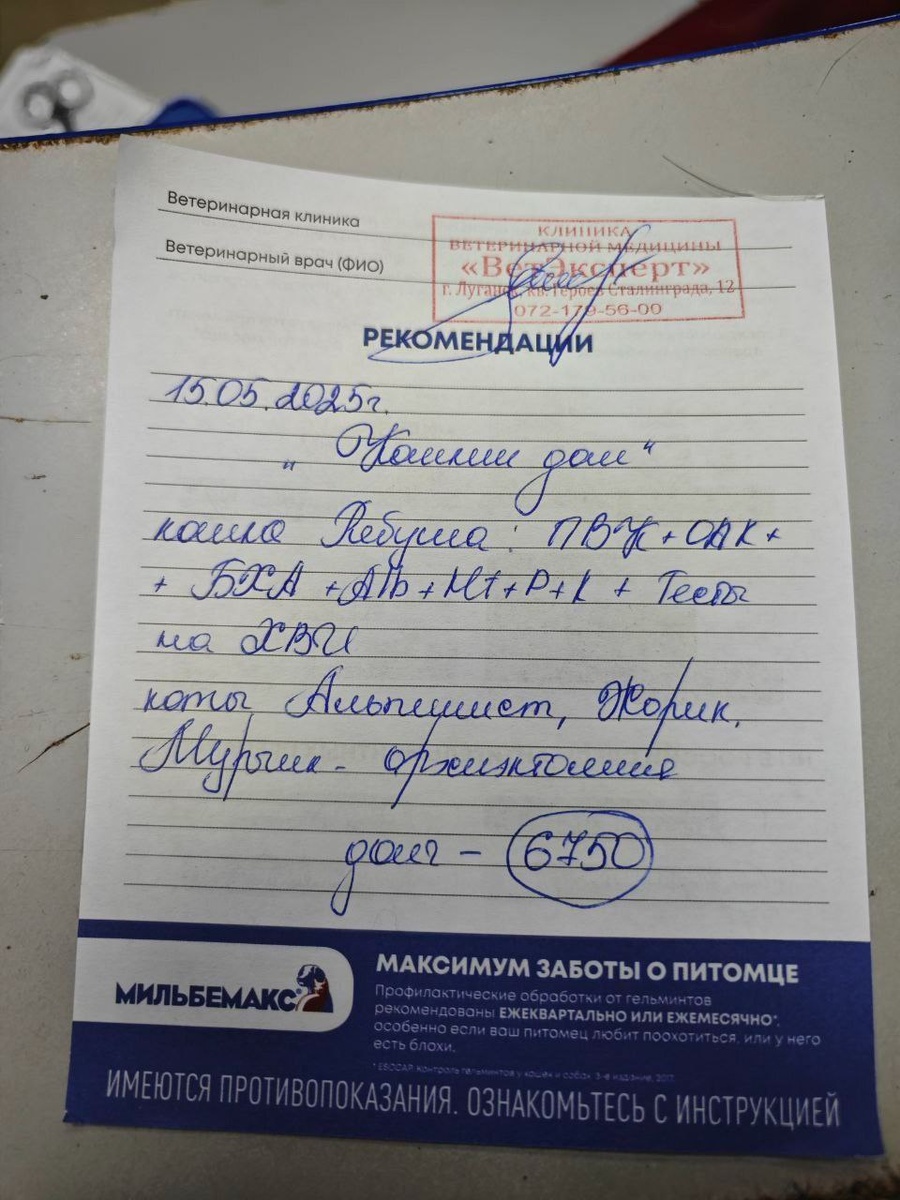 Ветеринарная клиника
Ветеринарный врач (ФИО)
КЛИНИКА
ВЕТЕРИНАРНОЙ МЕДИЦИНЫ
«ВетЭксперт»
г. Луганск, кв. Героев Сталинграда, 12
072-179-56-00
РЕКОМЕНДАЦИИ
15.05.2025г.
„ Кошкин дом“
кошка Ребуша: ПВК+ОАК+
+ БХА +Alb+Ht+P+K + Тесты
на ХВИ
коты Альпинист, Жорик,
Мурзик - орхиэктомия
долг - 6750
МИЛЬБЕМАКС®
МАКСИМУМ ЗАБОТЫ О ПИТОМЦЕ
Профилактические обработки от гельминтов
рекомендованы ЕЖЕКВАРТАЛЬНО ИЛИ ЕЖЕМЕСЯЧНО*,
особенно если ваш питомец любит поохотиться, или у него
есть блохи.
* ESCCAP. Контроль гельминтов у кошек и собак. 3-е издание, 2017
ИМЕЮТСЯ ПРОТИВОПОКАЗАНИЯ. ОЗНАКОМЬТЕСЬ С ИНСТРУКЦИЕЙ